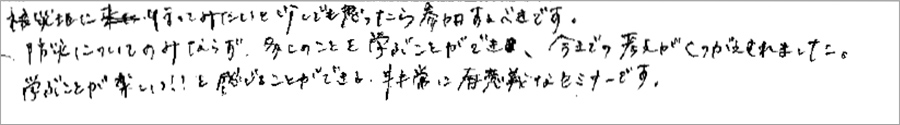 被災地に行ってみたいと少しでも思ったら参加すべきです。
防災についてのみならず、多くのことを学ぶことができ、今までの考えがくつがえされました。
学ぶことが楽しい!!と感じることができる、非常に有意義なセミナーです。